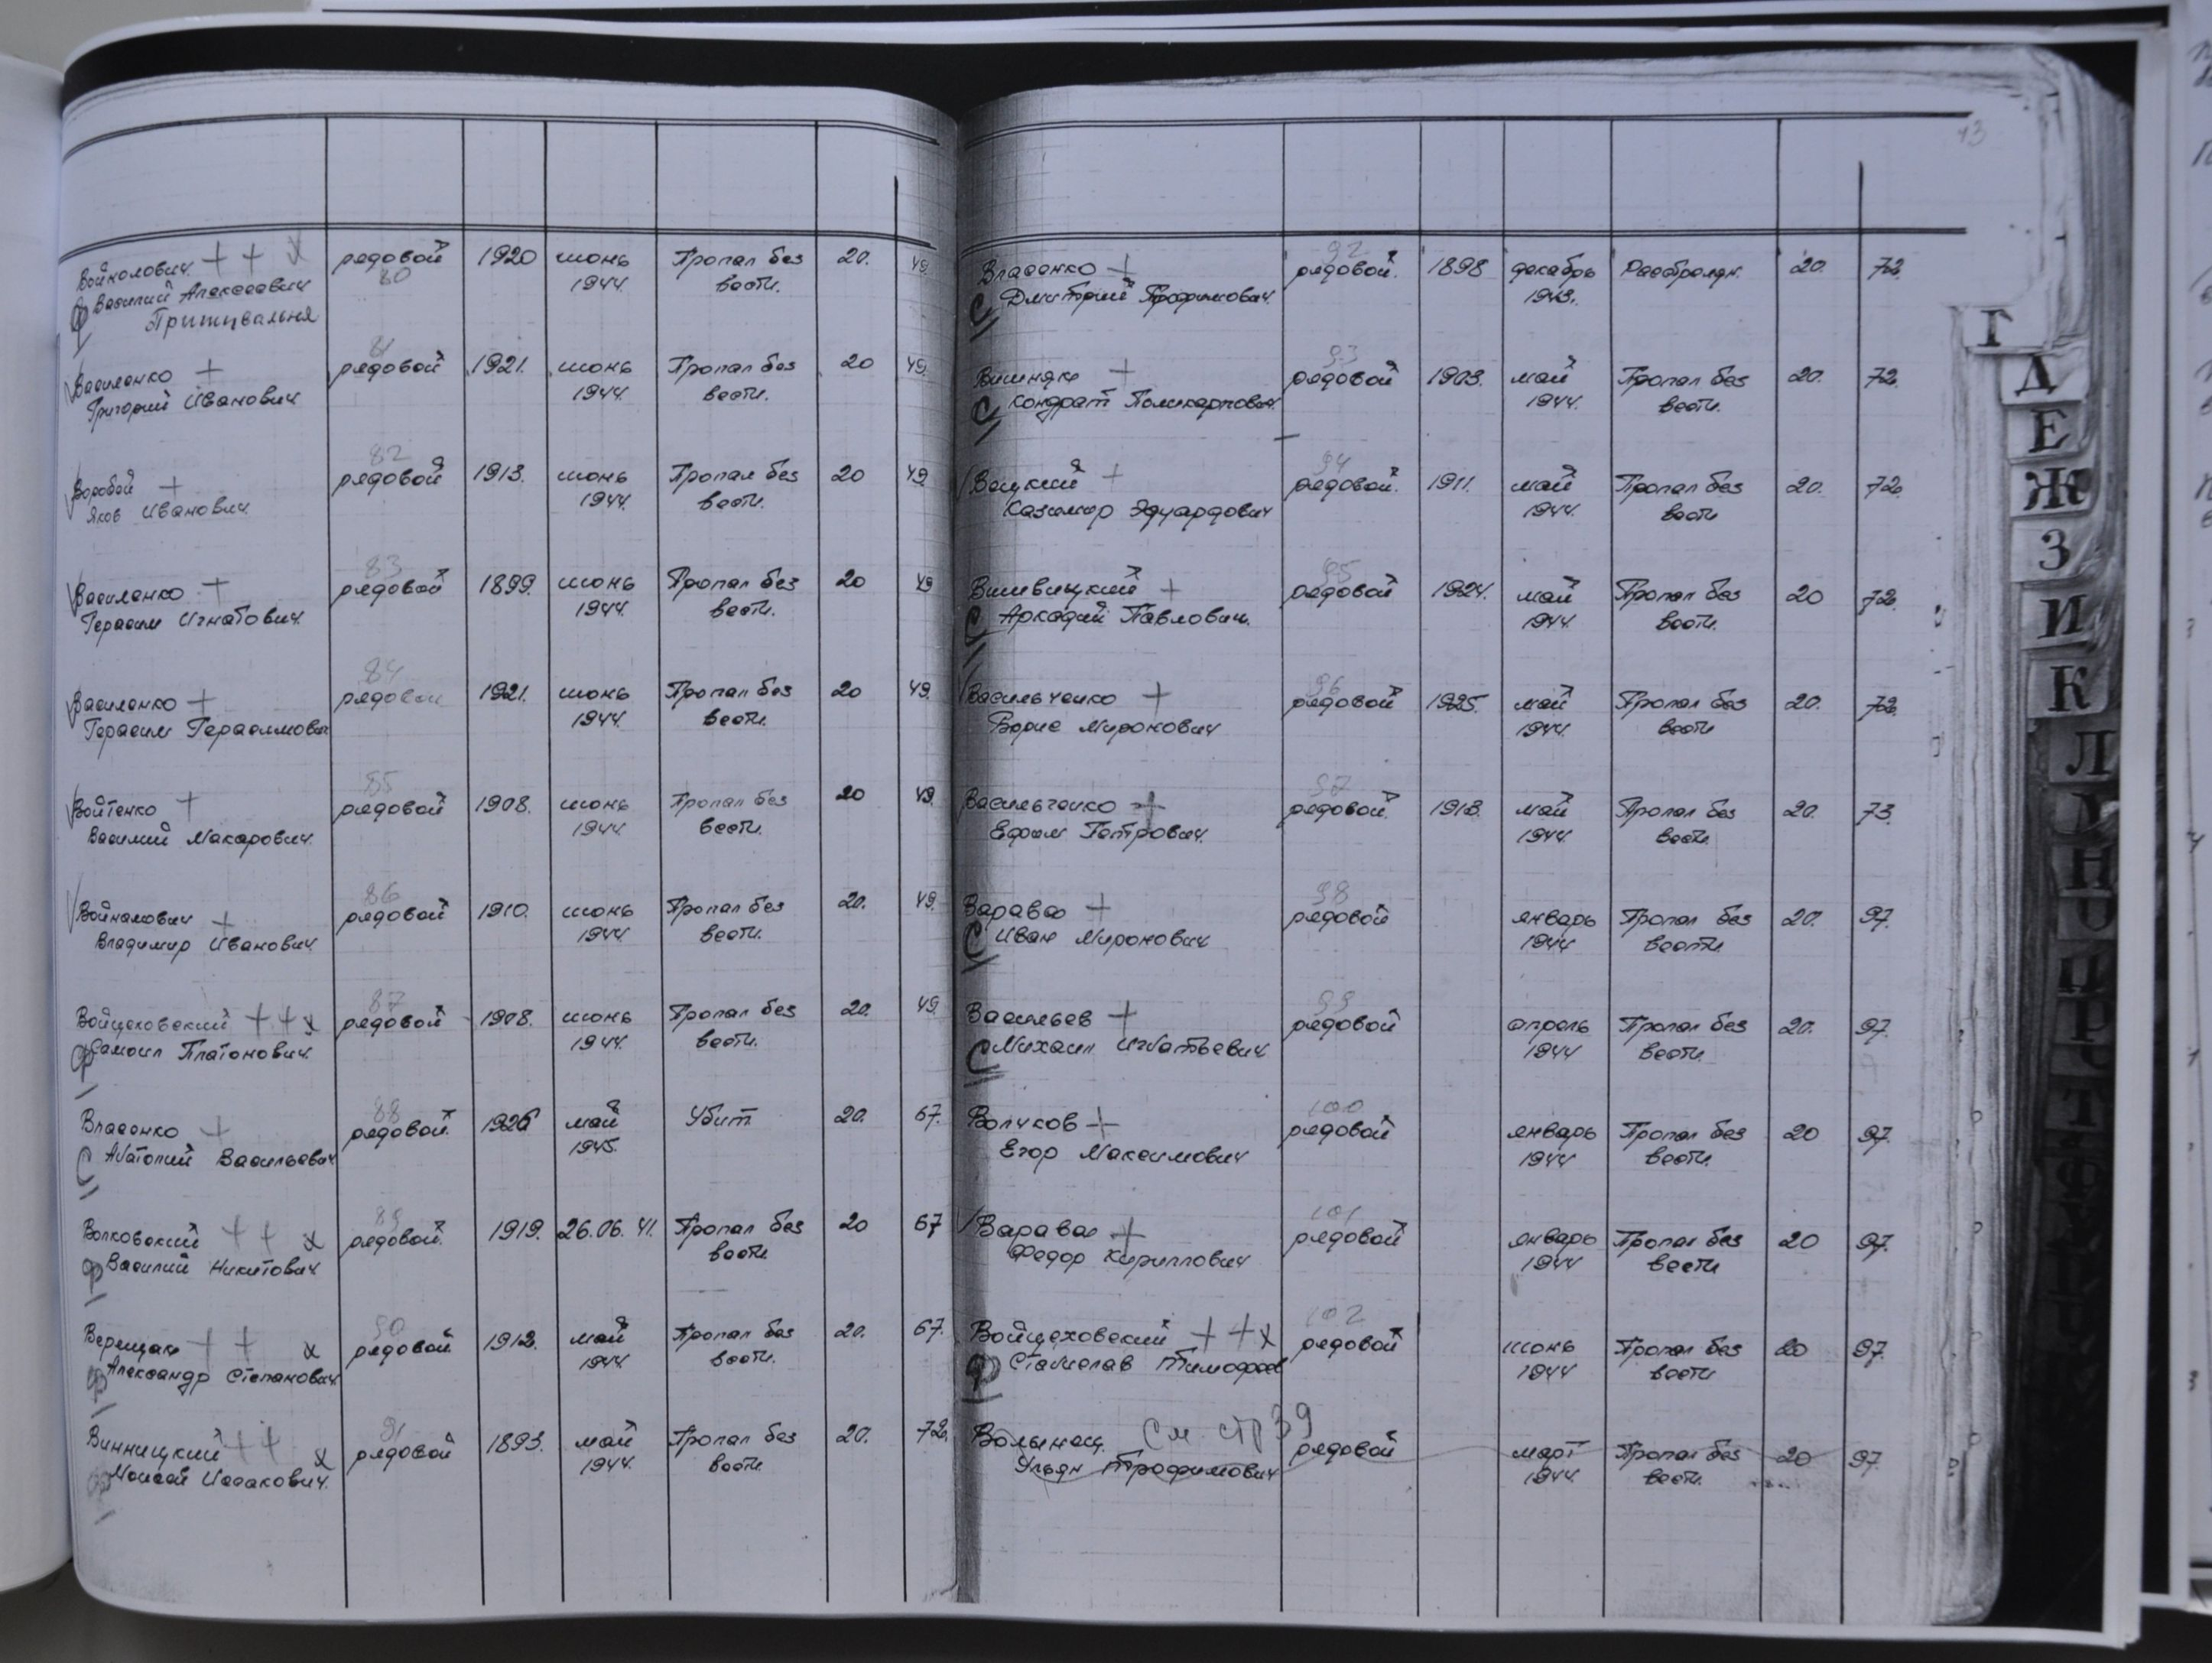 Войнолович + + х рядовой 1920 июнь Пропал без 20. 49
Ф Василий Алексеевич 80 1944. вести.
Притцвальня
81
Василенко + рядовой 1921. июнь Пропал без 20 49
Григорий Иванович 1944. вести.
82
Воробей + рядовой 1913. июнь Пропал без 20 49
Яков Иванович 1944. вести.
83
Василенко + рядовой 1899. июнь Пропал без 20 49
Герасим Игнатович 1944. вести.
84
Василенко + рядовой 1921. июнь Пропал без 20 49.
Герасим Герасимович 1944. вести.
85
Войтенко + рядовой 1908. июнь Пропал без 20 49
Василий Макарович 1944. вести.
86
Войналович + рядовой 1910. июнь Пропал без 20. 49
Владимир Иванович 1944 вести.
87
Войцеховский + + х рядовой 1908. июнь Пропал без 20. 49
Ф Самоил Платонович 1944 вести.
88
Власенко + рядовой. 1926 май Убит 20. 67.
С Анатолий Васильевич 1945.
89
Волковский + + х рядовой. 1919. 26.06.41. Пропал без 20 67
Ф Василий Никитович вести
90
Верещак + + х рядовой 1912. май Пропал без 20. 67.
Ф Александр Степанович 1944 вести.
91
Винницкий + + х рядовой 1893. май Пропал без 20. 72.
Моисей Исаакович. 1944. вести.
43
92
Власенко + рядовой. 1898 декабрь Расстрелян. 20. 72.
С Дмитрий Трофимович 1943.
93
Вишняк + рядовой 1903. май Пропал без 20. 72.
С Кондрат Поликарпович 1944. вести.
94
Вацкий + рядовой. 1911. май Пропал без 20. 72.
Казимир Эдуардович 1944. вести
95
Вишвицкий + рядовой 1924. май Пропал без 20 72.
С Аркадий Павлович. 1944. вести.
96
Васильченко + рядовой 1925. май Пропал без 20. 72.
Борис Миронович 1944. вести
97
Васильченко + рядовой. 1918. май Пропал без 20. 73.
Ефим Петрович. 1944. вести.
98
Варавва + рядовой январь Пропал без 20. 97.
С Иван Миронович 1944 вести.
99
Васильев + рядовой апрель Пропал без 20. 97.
С Михаил Игнатьевич 1944 вести.
100
Волчков + рядовой январь Пропал без 20 97.
Егор Максимович 1944 вести.
101
Варавва + рядовой январь Пропал без 20 97.
Федор Кириллович 1944 вести
102
Войцеховский + + х рядовой июнь Пропал без 20 97.
Ф Станислав Тимофеев 1944 вести
См стр 39
Волынец рядовой март Пропал без 20 97.
Ульян Трофимович 1944 вести.
Г
Д
Е
Ж
З
И
К
Л
Н
О
П
Р
Т